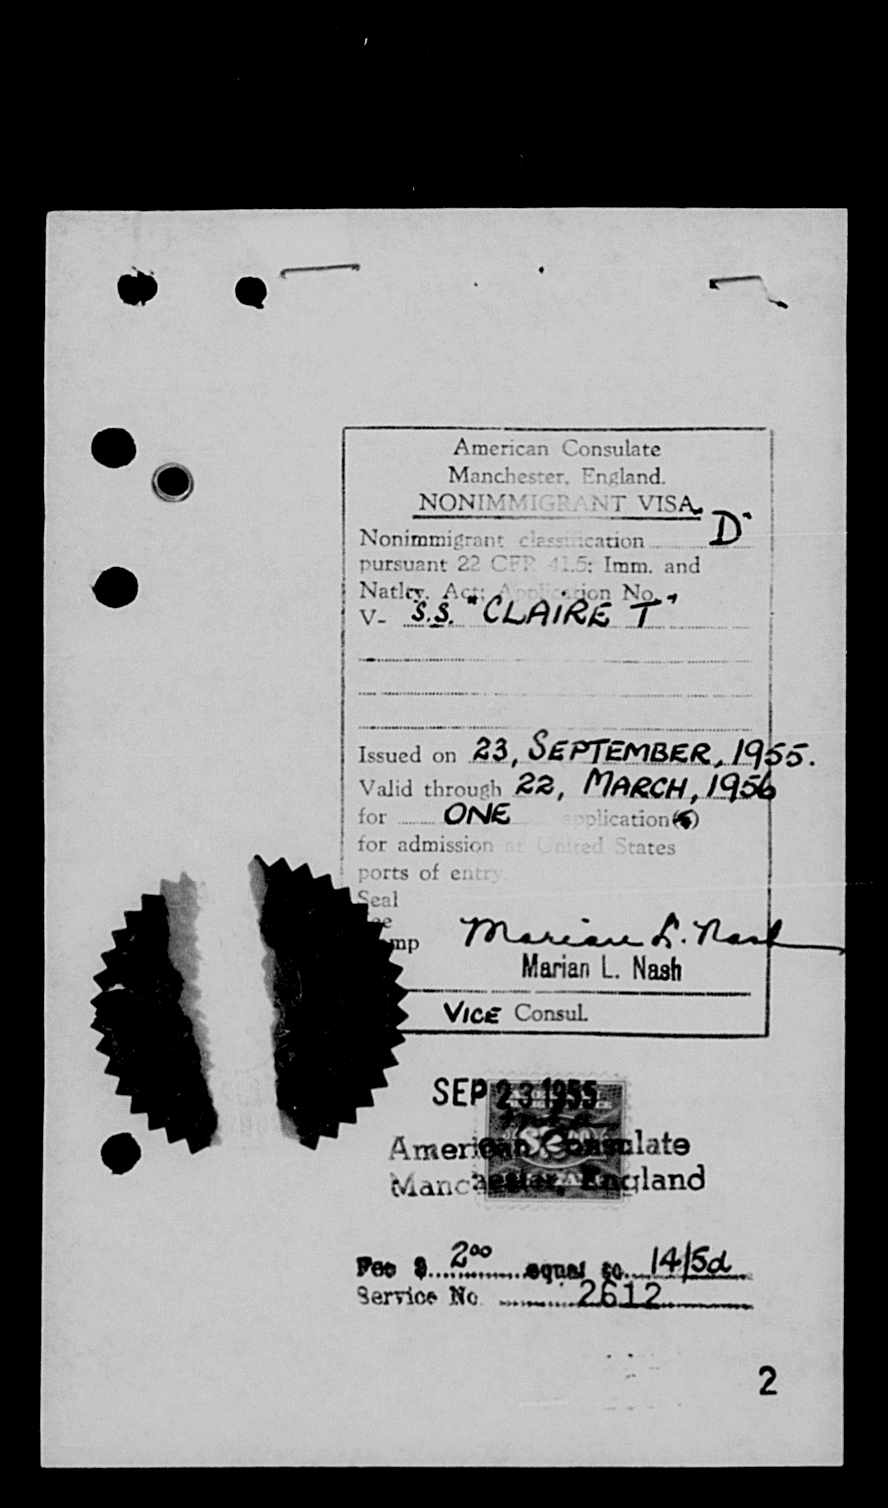 American Consulate
Manchester, England.
NONIMMIGRANT VISA
Nonimmigrant classification D"
pursuant 22 CFR 41.5; Imm. and
Natlty. Act; Application No.
V- S.S. "CLAIRE T"
Issued on 23, SEPTEMBER, 1955.
Valid through 22, MARCH, 1956
for ONE application(s)
for admission at United States
ports of entry.
Seal
Marian L. Nash
Marian L. Nash
VICE Consul.
SEP 23 1955
American Consulate
Manchester, England
Fee $ 2 00 equal to 14/5d
Service No. 2612
2